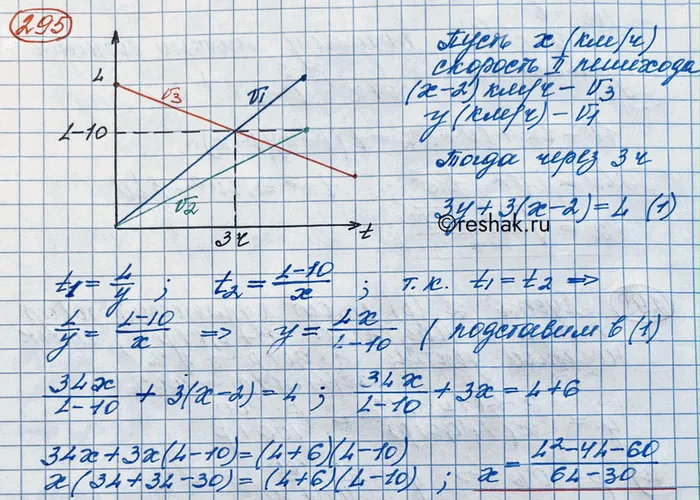 295
Пусть x (км/ч)
скорость II пешехода
(x-2) км/ч - v3
y (км/ч) - v1
Тогда через 3ч
3y + 3(x-2) = L (1)
©reshak.ru
L
L-10
v3
v1
v2
3ч
t
t1 = L/y ; t2 = (L-10)/x ; т.к. t1 = t2 =>
L/y = (L-10)/x => y = Lx/(L-10) ( подставим в (1)
3Lx/(L-10) + 3(x-2) = L ; 3Lx/(L-10) + 3x = L+6
3Lx + 3x(L-10) = (L+6)(L-10)
x(3L+3L-30) = (L+6)(L-10) ; x = (L²-4L-60)/(6L-30)